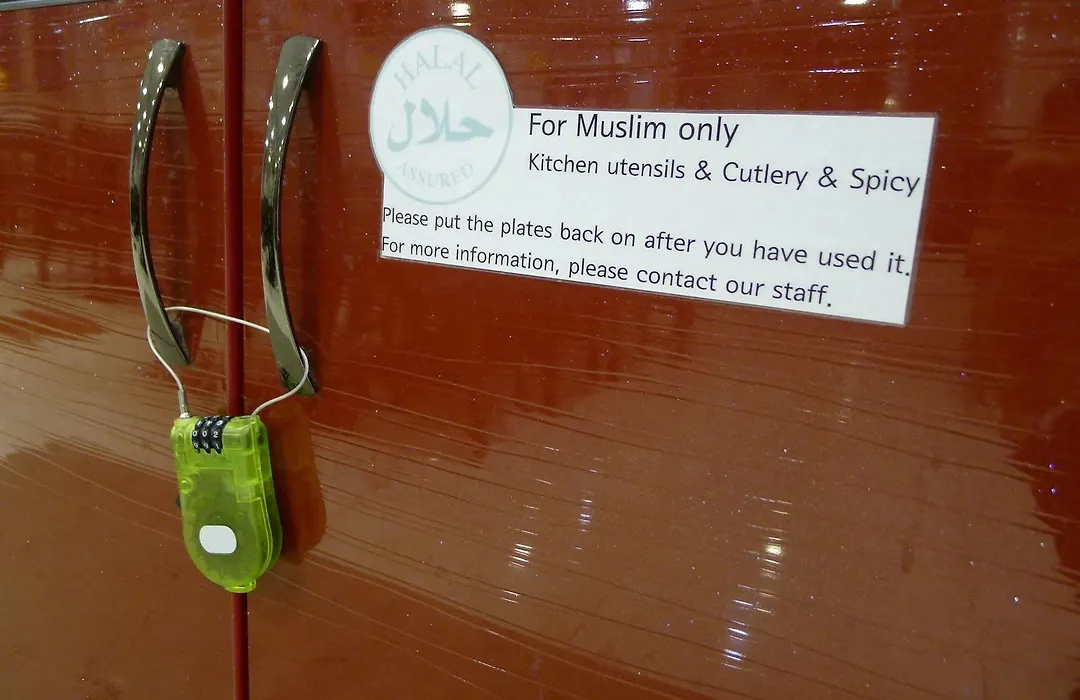 HALAL
حلال
ASSURED
For Muslim only
Kitchen utensils & Cutlery & Spicy
Please put the plates back on after you have used it.
For more information, please contact our staff.